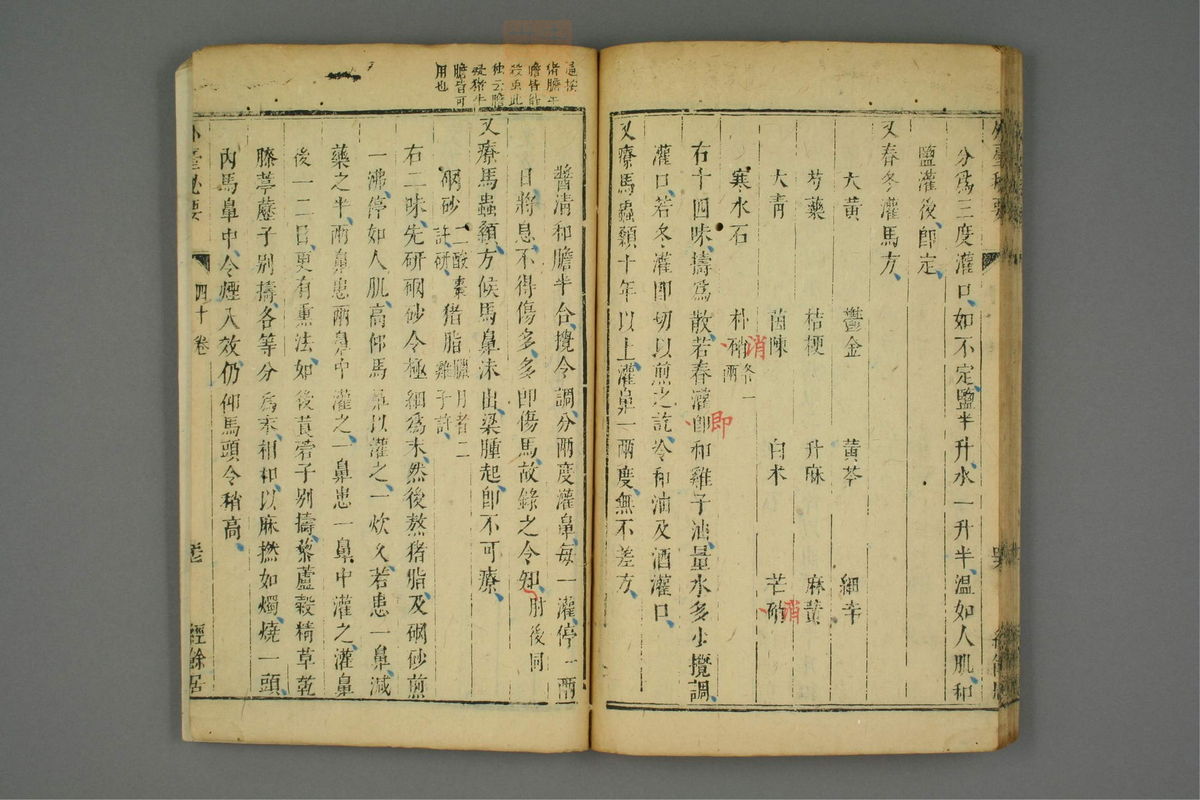 分為三度灌口如不定鹽半升水一升半溫如人肌和
鹽灌後即定
又春冬灌馬方
大黃 鬱金 黃芩 細辛
芍藥 桔梗 升麻 麻黃
大青 茵陳 白朮 芒硝
消
寒水石 朴硝各一兩
消
右十四味擣為散若春灌即和雞子油量水多少攪調
即
灌口若冬灌即切以煎之訖冷和油及酒灌口
又療馬蟲顙十年以上灌鼻一兩度無不差方
逼按
猪膽牛
膽皆能
殺虫此
独云膽
或猪牛
膽皆可
用也
醬清和膽半合攪令調分兩度灌鼻每一灌停一兩
日將息不得傷多多即傷馬故錄之令知肘後同
又療馬蟲顙方候馬鼻沫出梁腫起即不可療
硇砂二酸棗許研 猪脂臘月者二雞子許
右二味先研硇砂令極細為末然後熬猪脂及硇砂煎
一沸停如人肌高仰馬鼻以灌之一炊久若患一鼻減
藥之半兩鼻患兩鼻中灌之一鼻患一鼻中灌之灌鼻
後一二日更有熏法如後莨菪子別擣藜蘆穀精草乾
滕葶藶子別擣各等分為末相和以麻撚如燭燒一頭
內馬鼻中令煙入效仍仰馬頭令稍高
外臺秘要 四十卷 經餘居